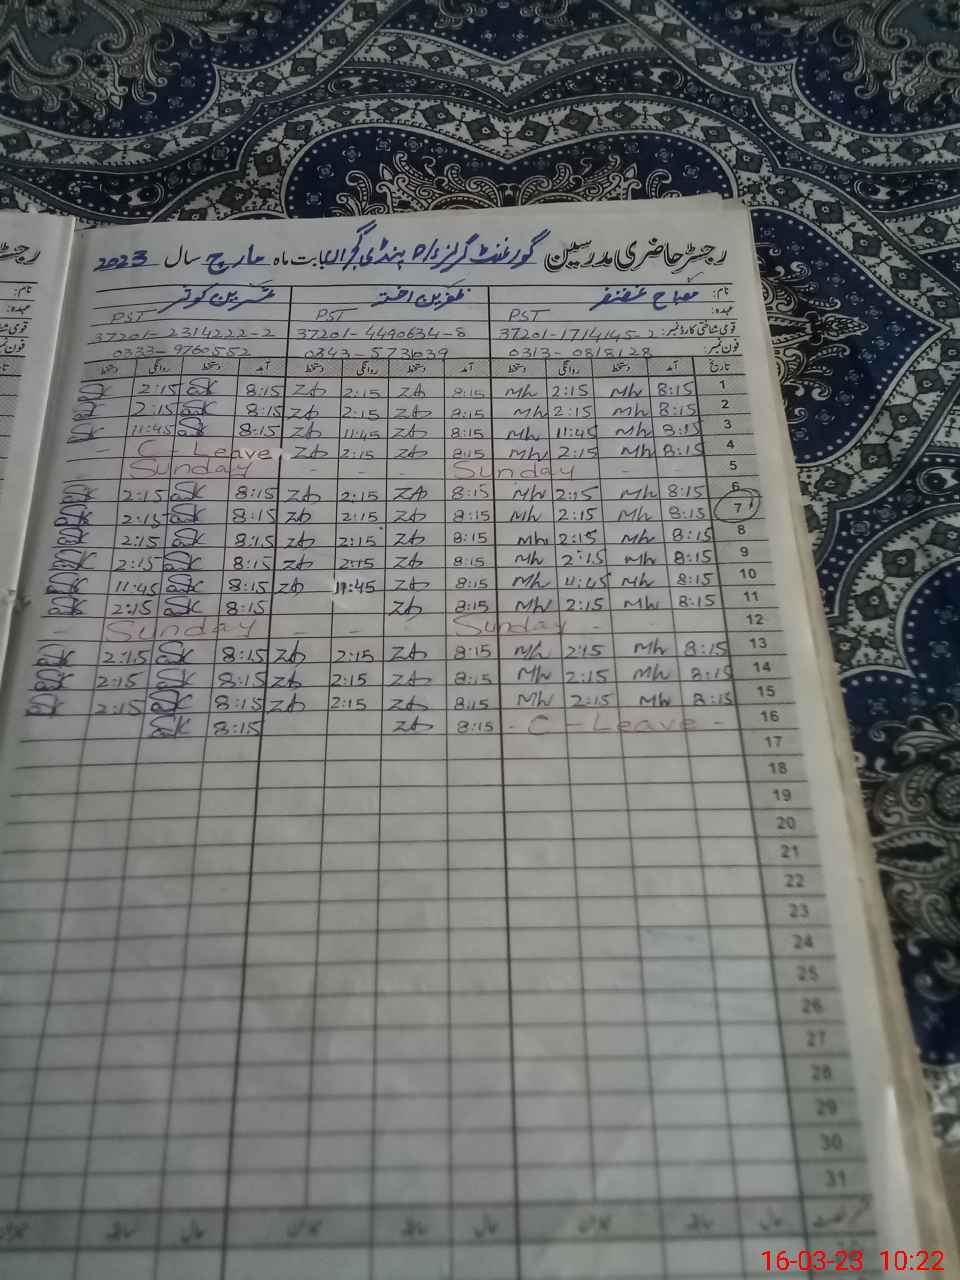 رجسٹر حاضری مدرسین گورنمنٹ گرلز پنڈی گجراں بابت ماہ مارچ سال 2023
نام: مصباح غضنفر ظفرین اختر نسرین کوثر
عہدہ: PST PST PST
قومی شناختی کارڈ نمبر: 37201-1714145-2 37201-4490634-8 37201-2314222-2
فون نمبر: 0313-0818128 0343-5731039 0333-9760552
تاریخ آمد دستخط روانگی دستخط آمد دستخط روانگی دستخط آمد دستخط روانگی دستخط
1 8:15 Mh 2:15 Mh 8:15 ZA 2:15 ZA 8:15 SK 2:15 SK
2 8:15 Mh 2:15 Mh 8:15 ZA 2:15 ZA 8:15 SK 2:15 SK
3 8:15 Mh 11:45 Mh 8:15 ZA 11:45 ZA 8:15 SK 11:45 SK
4 8:15 Mh 2:15 Mh 8:15 ZA 2:15 ZA C-Leave -
5 - - Sunday - - - Sunday -
6 8:15 Mh 2:15 Mh 8:15 ZA 2:15 ZA 8:15 SK 2:15 SK
7 8:15 Mh 2:15 Mh 8:15 ZA 2:15 ZA 8:15 SK 2:15 SK
8 8:15 Mh 2:15 Mh 8:15 ZA 2:15 ZA 8:15 SK 2:15 SK
9 8:15 Mh 2:15 Mh 8:15 ZA 2:15 ZA 8:15 SK 2:15 SK
10 8:15 Mh 11:45 Mh 8:15 ZA 11:45 ZA 8:15 SK 11:45 SK
11 8:15 Mh 2:15 Mh 8:15 ZA 8:15 SK 2:15 SK
12 - - Sunday - - Sunday -
13 8:15 Mh 2:15 Mh 8:15 ZA 2:15 ZA 8:15 SK 2:15 SK
14 8:15 Mh 2:15 Mh 8:15 ZA 2:15 ZA 8:15 SK 2:15 SK
15 8:15 Mh 2:15 Mh 8:15 ZA 2:15 ZA 8:15 SK 2:15 SK
16 - C-Leave - 8:15 ZA 8:15 SK
17
18
19
20
21
22
23
24
25
26
27
28
29
30
31
حال سابقہ میزان حال سابقہ میزان حال سابقہ میزان
16-03-23 10:22